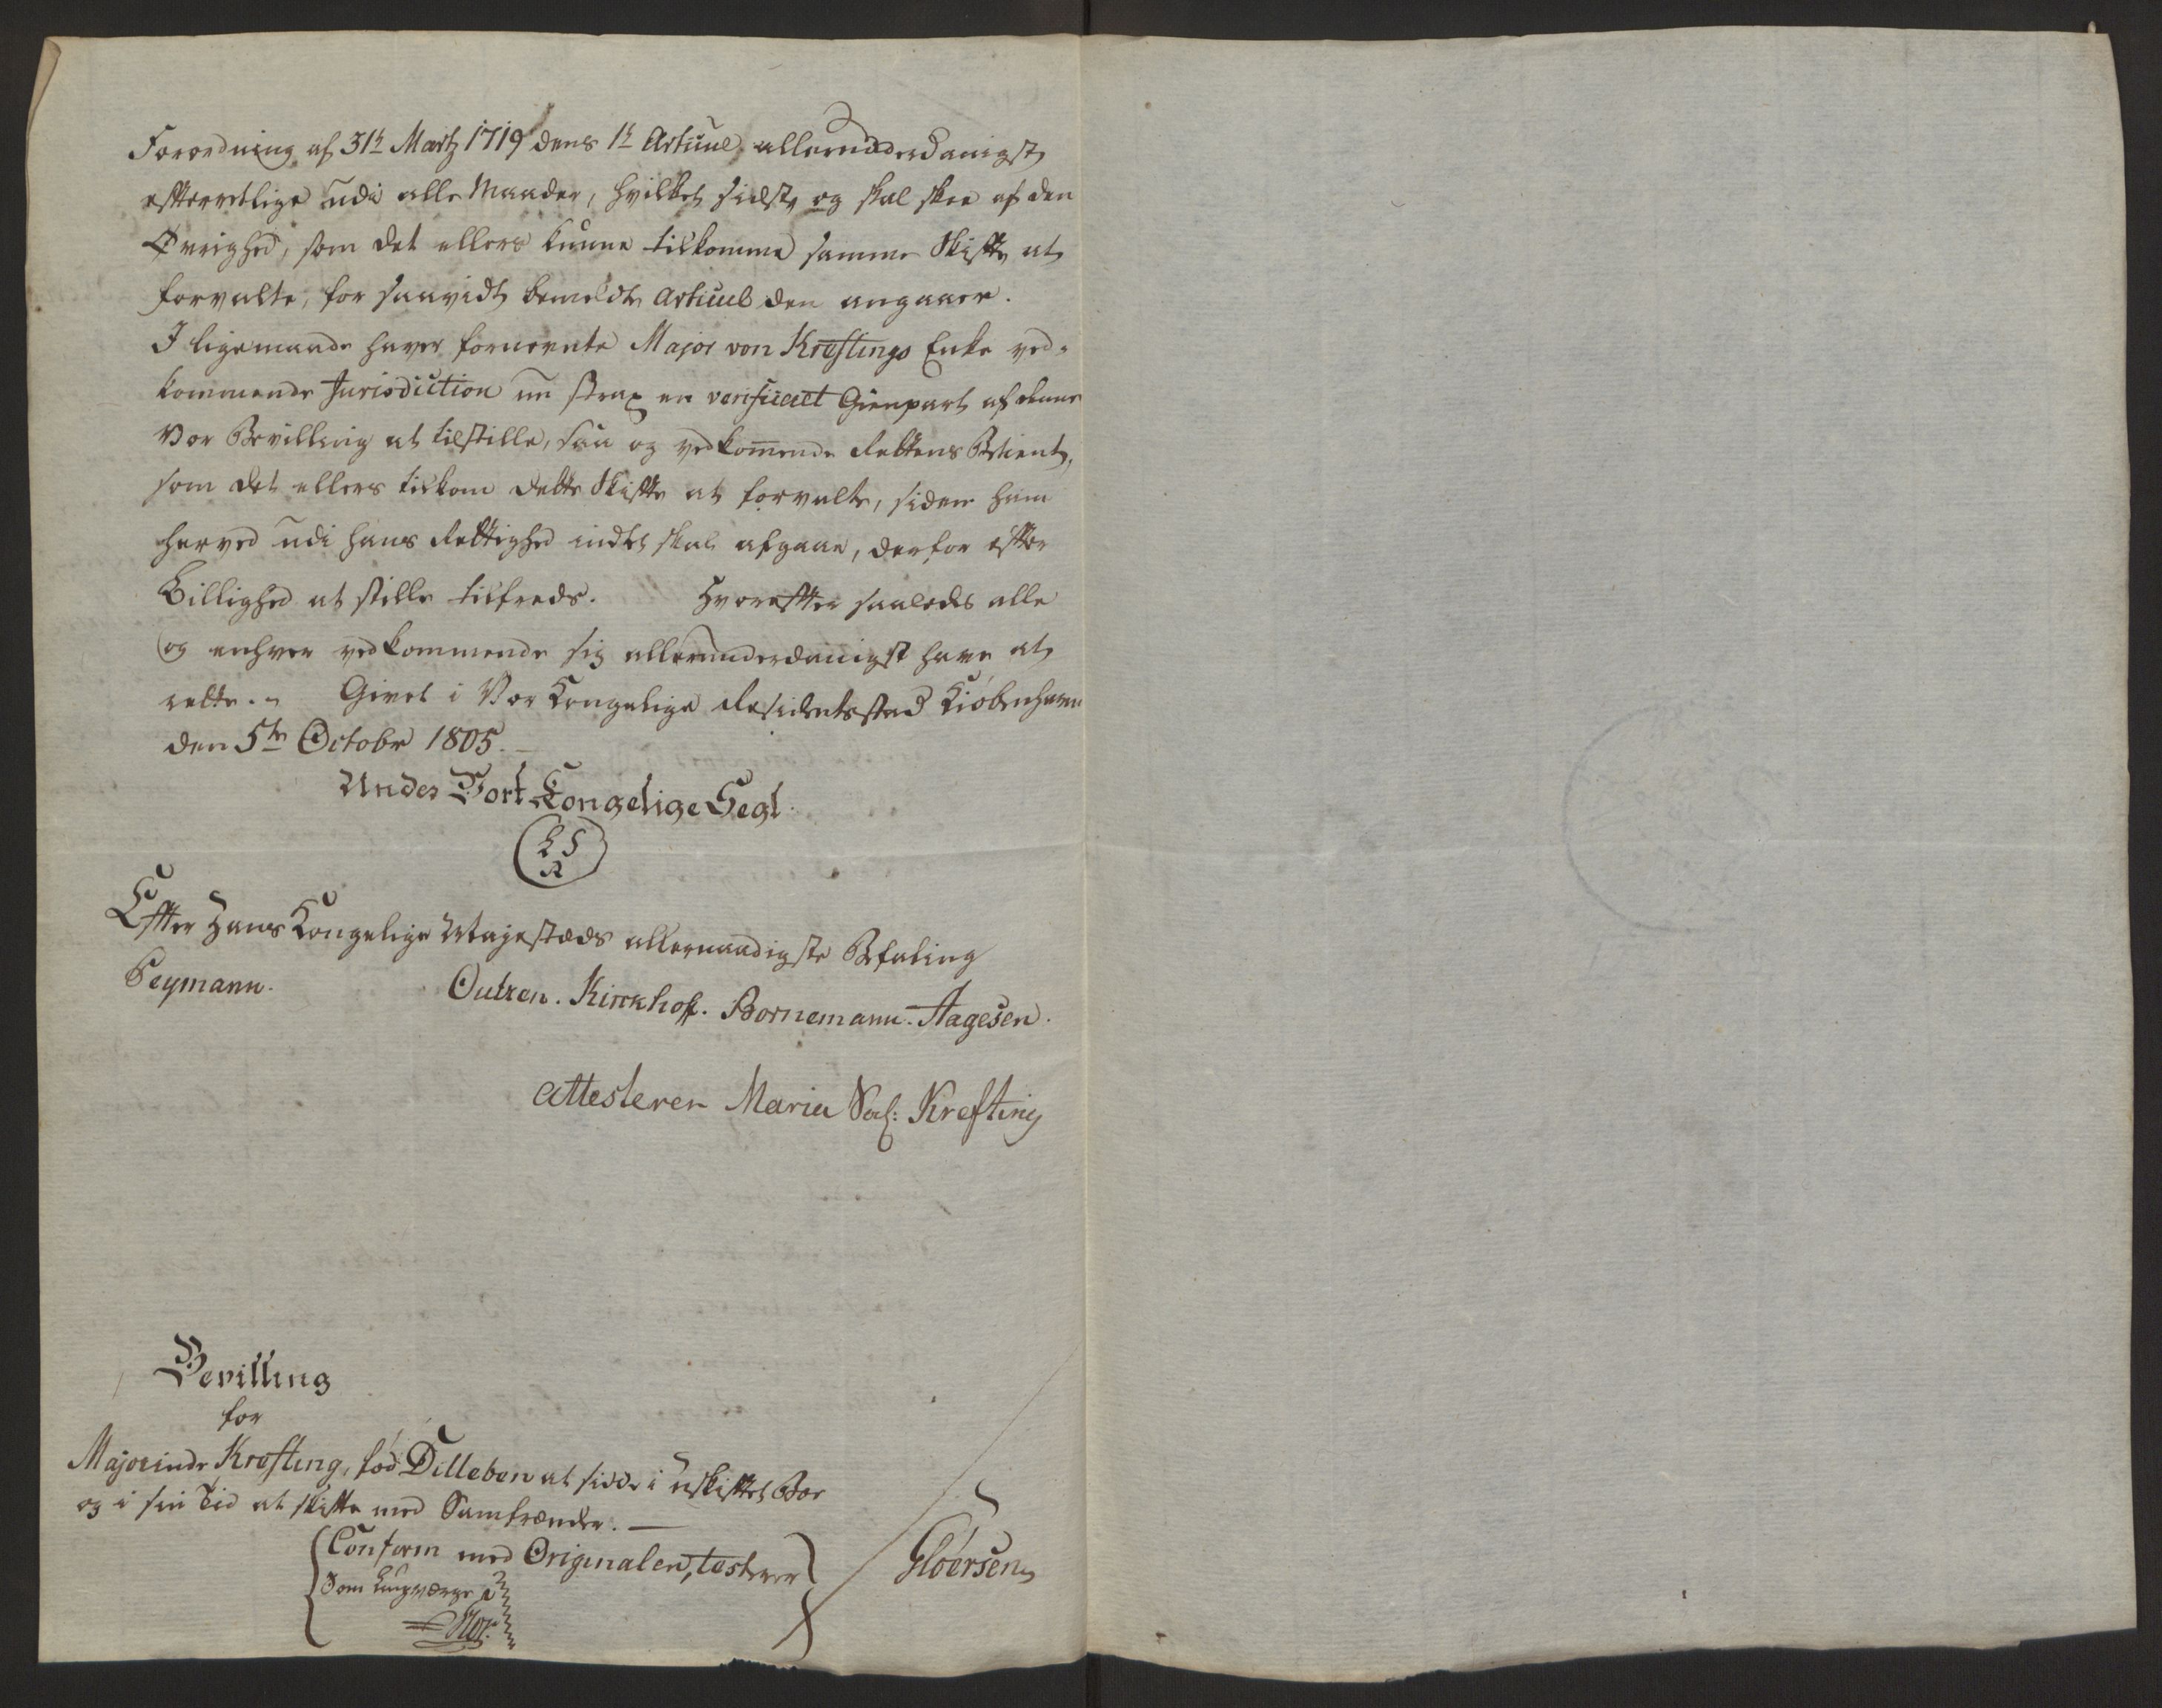 Forordning af 31te Martz 1719 dens 1te Articul, allerunderdanigst
efterrettlige udi alle Maader, hvilket sidste og skal skee af den
Øvrighed, som det ellers kunne tilkomme samme Skifte at
forvalte, for saavidt bemeldte Articul den angaaer.
I ligemaade haver fornevnte Major von Kreftings Enke ved-
kommende Jurisdiction nu strax en verificeret Gienpart af denne
Vor Bevilling at tilstille, saa og vedkommende Rettens Betient,
som det ellers tilkom dette Skifte at forvalte, siden ham
herved udi hans Rettighed indtet skal afgaae, derfor efter
Billighed at stille tilfreds. Hvorefter saaledes alle
og enhver vedkommende sig allerunderdanigst have at
rette. Givet i Vor Kongelige Residentsstad Kiøbenhavn
den 5te Octobr 1805.
Under Vort Kongelige Segl.
L S
R
Efter Hans Kongelige Majestæds allernaadigste Befaling
Peymann. Outzen. Kirckhoff. Bornemann. Aagesen.
Attesterer Maria Sal: Krefting
Bevilling
for
Majorinde Krefting, fød Dilleben at sidde i uskiftet Boe
og i sin Tid at skifte med Samfrænder.
Conform med Originalen, testerer
Som Laugværge
Gloersen